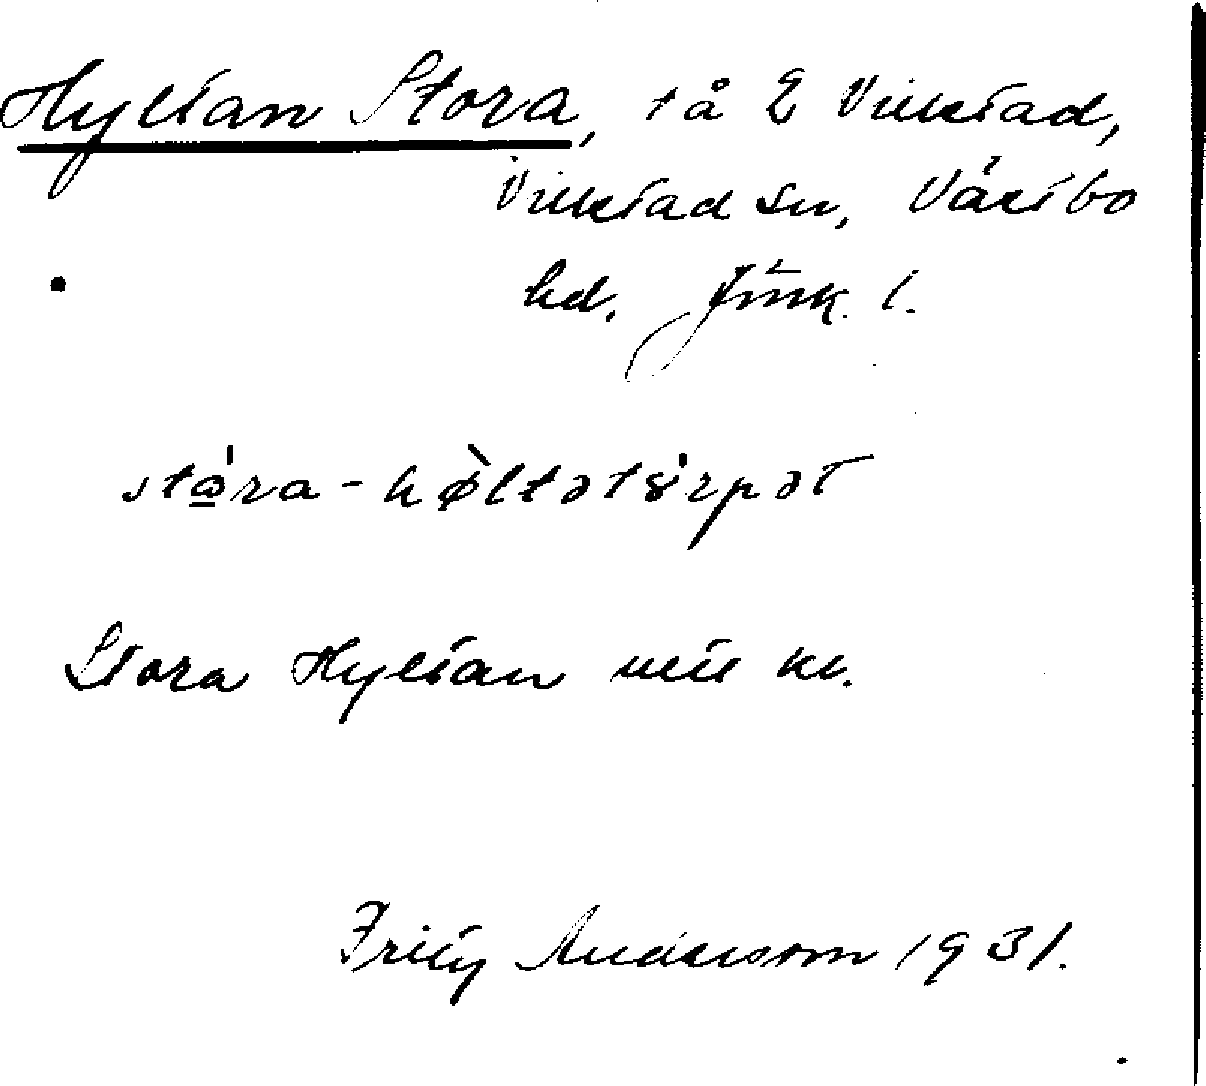 Hyltan Stora, tå 2 Villstad,
Villstad sn, Västbo
hd. Jönk. l.
stå̱ra-hø̀ltətɤrpət
Stora Hyltan utt kr.
Fritz Anderson 1931.